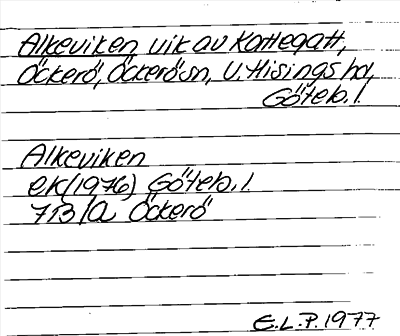 Alkeviken, vik av Kattegatt,
Öckerö, Öckerö sn, V. Hisings hd,
Göteb. l.
Alkeviken
ek (1976) Göteb. l.
7B 1a Öckerö
E.L.P. 1977